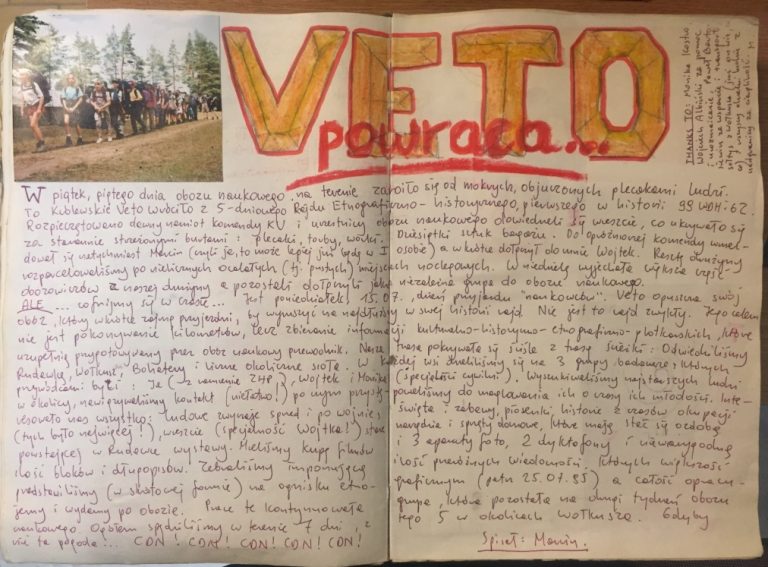 VETO
powraca...
THANKS TO: Monika
Wojciech za pomoc
W piątek, piętego dnia obozu naukowego, na terenie zaroiło się od mokrych, objuczonych plecakami ludzi.
To Kublewskie Veto wróciło z 5-dniowego Rajdu Etnograficzno-historycznego, pierwszego w historii 99 WDH-62.
Rozpieczętowano dawny namiot komendy KU i uczestnicy obozu naukowego dowiedzieli się wreszcie, co ukrywało się
za starannie strzeżonymi burtami: plecaki, torby, worki. Dziesiątki sztuk bagażu. Do opóźnionej komendy wmel-
dował się natychmiast Marcin (czyli ja, to może lepiej już będę w I osobie) a wkrótce dołączył do mnie Wojtek. Resztę drużyny
rozparcelowaliśmy po nielicznych ocalałych (tj. pustych) miejscach noclegowych. W niedzielę wyjechała większa część
obozowiczów z naszej drużyny a pozostali dołączyli jako niezależna grupa do obozu naukowego.
ALE ... cofnijmy się w czasie... Jest poniedziałek 15.07, dzień przyjazdu "naukowców". Veto opuszcza swój
obóz, który wkrótce zajmą przyjezdni, by wyruszyć na najdłuższy w swej historii rajd. Nie jest to rajd zwykły. Jego celem
nie jest pokonywanie kilometrów, lecz zbieranie informacji kulturalno-historyczno-etnograficzno-plotkarskich, które
uzupełnią przygotowywany przez obóz naukowy przewodnik. Nasza trasa pokrywała się ściśle z trasą śnieżki: Odwiedziliśmy
Rudawkę, Wołkusz, Bohatery i inne okoliczne sioła. W każdej wsi dzieliliśmy się na 3 grupy badawcze, których
przywódcami byli: Ja (z ramienia ZHP), Wojtek i Monika (specjaliści cywilni). Wyszukiwaliśmy najstarszych ludzi
w okolicy, nawiązywaliśmy kontakt (niełatwo!) po czym przystępowaliśmy do maglowania ich o czasy ich młodości. Inte-
resowało nas wszystko: ludowe zwyczaje sprzed i po wojnie, święta i zabawy, piosenki, historie z czasów okupacji
(tych było najwięcej!), wreszcie (specjalność Wojtka!) stare narzędzia i sprzęty domowe, które mają stać się ozdobą
powstającej w Rudawce wystawy. Mieliśmy kupę filmów i 3 aparaty foto, 2 dyktafony i niewiarygodną
ilość bloków i długopisów. Zebraliśmy imponującą ilość przeróżnych wiadomości, których większość
przedstawiliśmy (w skrótowej formie) na ognisku etnograficznym (patrz 25.07.95) a całość opracu-
jemy i wydamy po obozie. Prace te kontynuowała grupa, która pozostała na drugi tydzień obozu
naukowego. Ogółem spędziliśmy w terenie 7 dni, z tego 5 w okolicach Wołkusza. Gdyby
nie ta pogoda... CDN! CDN! CDN! CDN! CDN!
Spisał: Marcin.